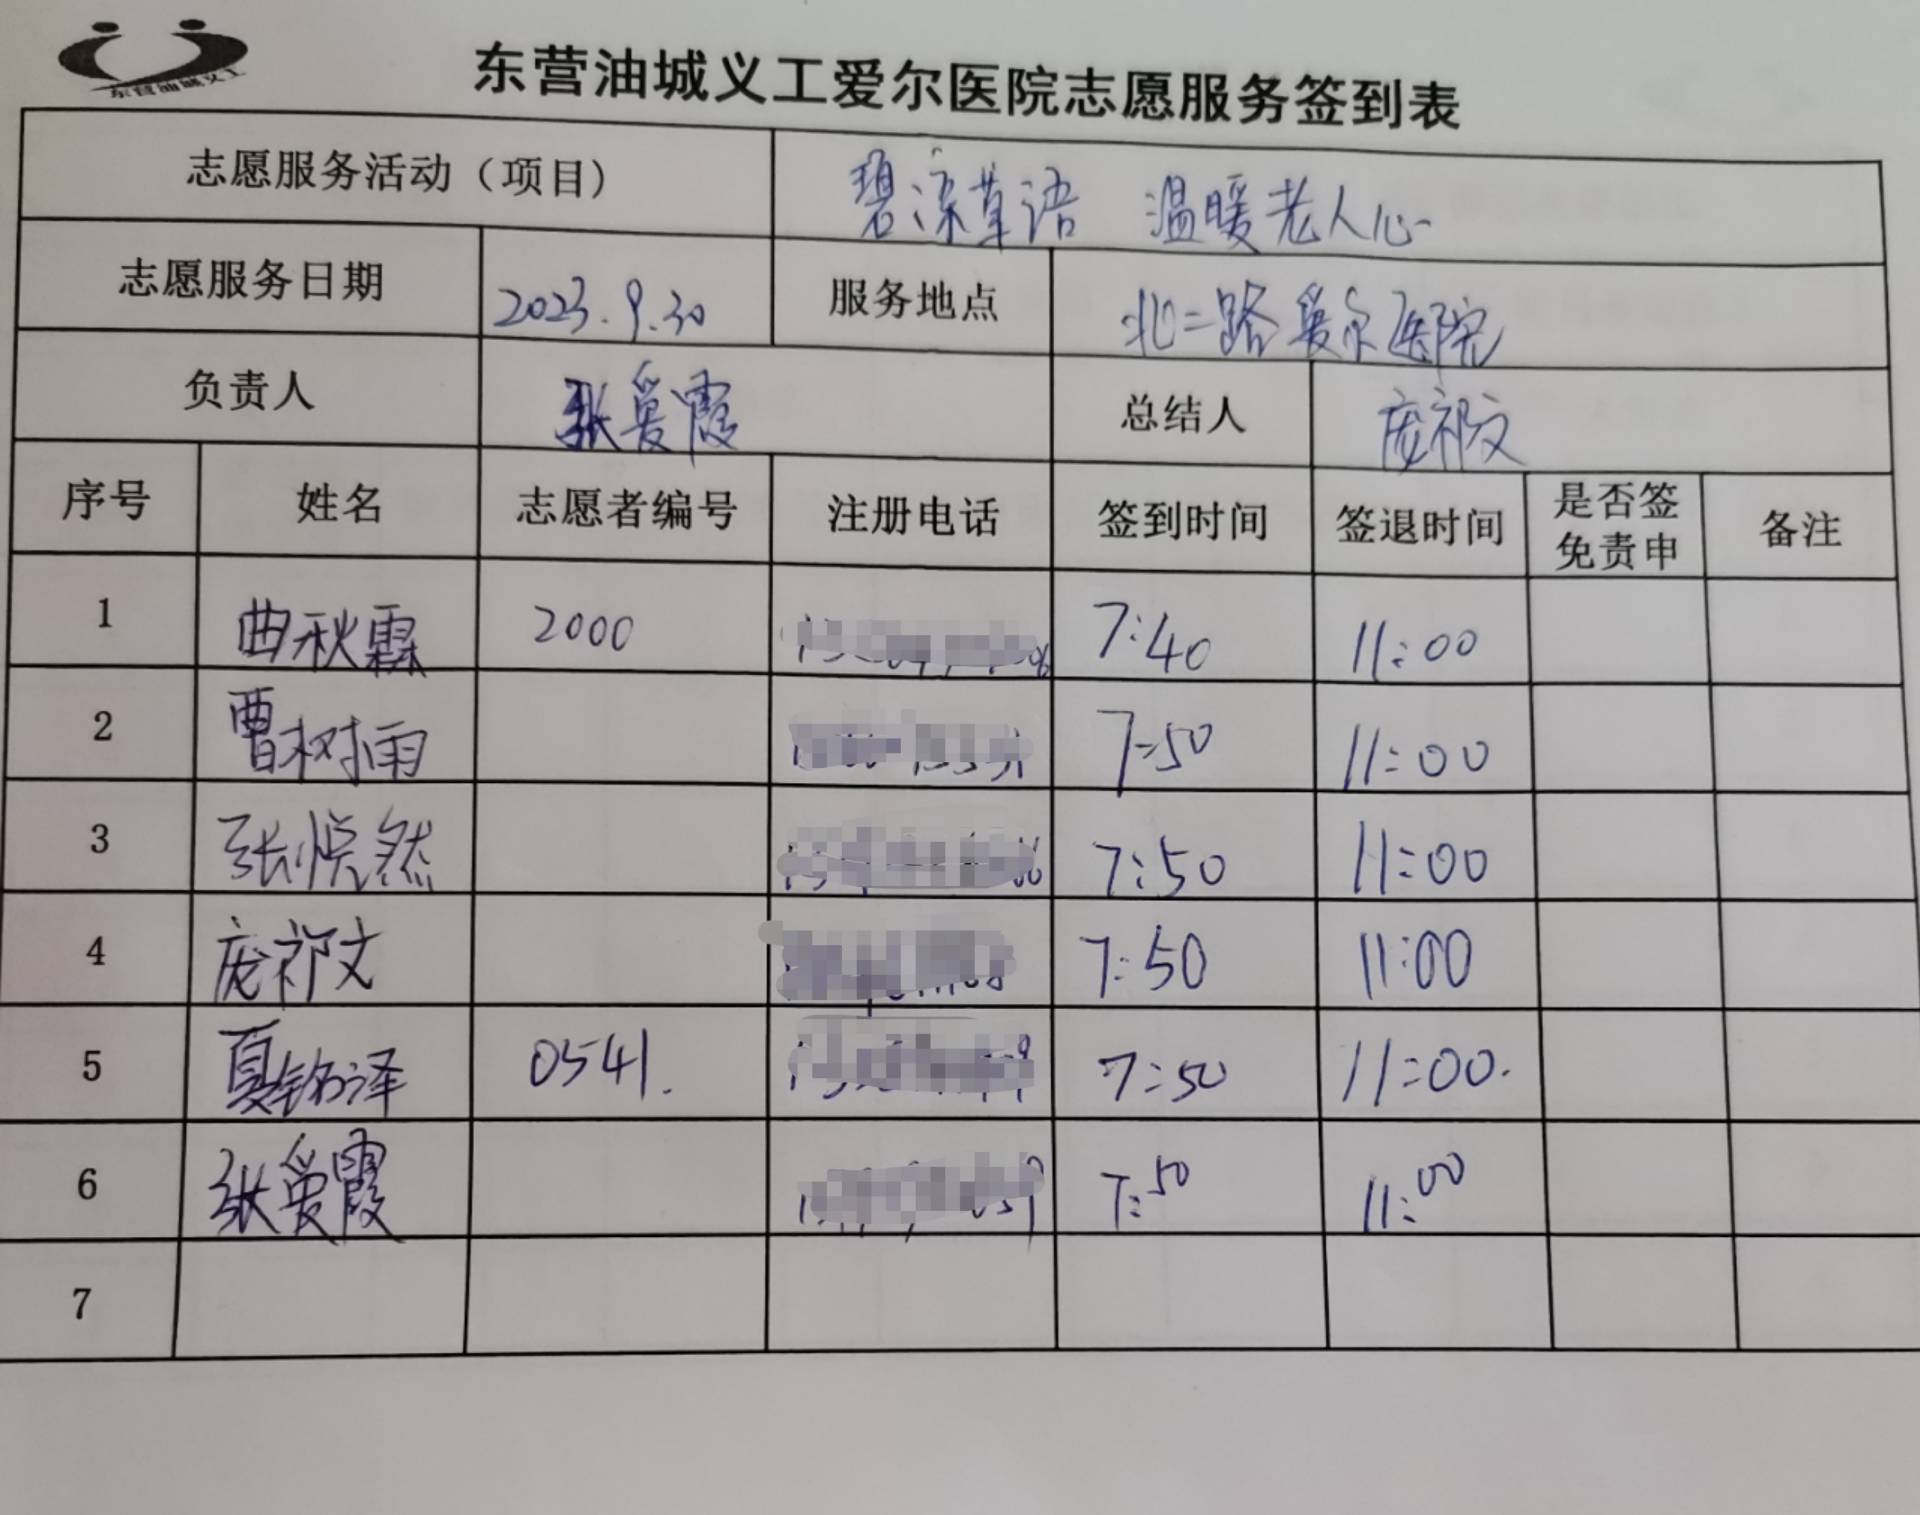 东营油城义工
东营油城义工爱尔医院志愿服务签到表
志愿服务活动（项目） 碧凉草语 温暖老人心
志愿服务日期 2023.9.30 服务地点 北二路爱尔医院
负责人 张爱霞 总结人 庞祁文
序号 姓名 志愿者编号 注册电话 签到时间 签退时间 是否签免责申 备注
1 曲秋霖 2000 7:40 11:00
2 曹树雨 7:50 11:00
3 张悦然 7:50 11:00
4 庞祁文 7:50 11:00
5 夏铭泽 0541. 7:50 11:00.
6 张爱霞 7:50 11:00
7